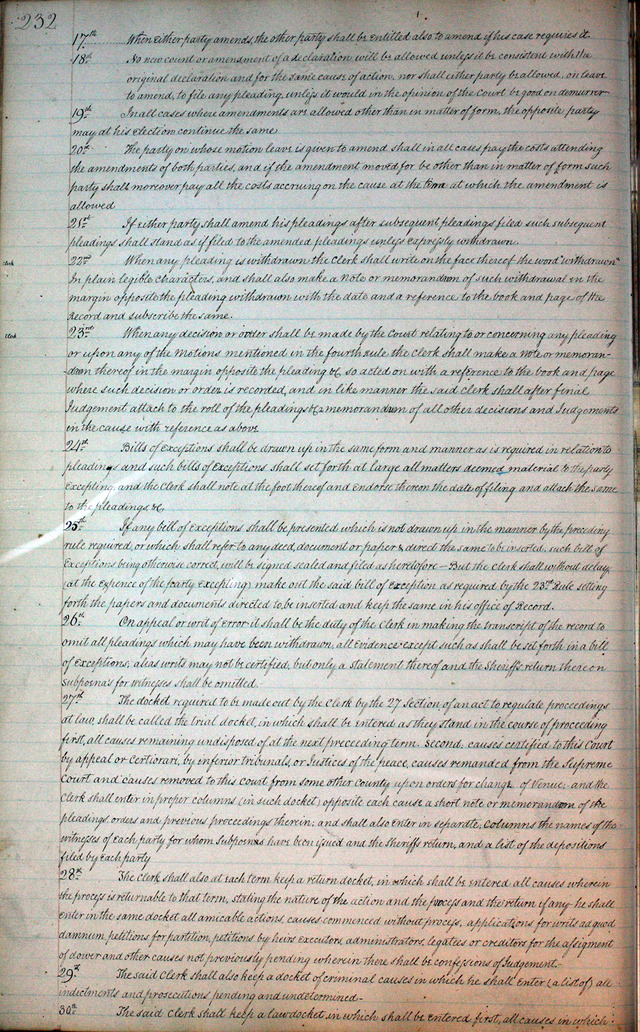 232
17th When either party amends, the other party shall be entitled also to amend if his case requires it
18th No new count or amendment of a declaration will be allowed unless it be consistent with the
original declaration and for the same cause of action, nor shall either party be allowed, on leave
to amend, to file any pleading, unless it would in the opinion of the Court be good on demurrer
19th In all cases where amendments are allowed other than in matter of form, the opposite party
may at his election continue the same
20th The party on whose motion leave is given to amend shall in all cases pay the costs attending
the amendments of both parties, and if the amendment moved for be other than in matter of form such
party shall moreover pay all the costs accruing on the cause at the term at which the amendment is
allowed
21st If either party shall amend his pleadings after subsequent pleadings filed such subsequent
pleadings shall stand as if filed to the amended pleadings unless expressly withdrawn.
Clerk 22nd When any pleading is withdrawn the Clerk shall write on the face thereof the word "withdrawn"
In plain legible characters, and shall also make a note or memorandum of such withdrawal in the
margin opposite the pleading withdrawn with the date and a reference to the book and page of the
Record and subscribe the same.
Clerk 23rd When any decision or order shall be made by the Court relating to or concerning any pleading
or upon any of the Motions mentioned in the fourth rule the Clerk shall make a note or memoran-
dum thereof in the margin opposite the pleading &c, so acted on with a reference to the book and page
where such decision or order is recorded, and in like manner the said Clerk shall after final
Judgement attach to the roll of the pleadings &c memorandum of all other decisions and Judgements
in the cause with reference as above
24th Bills of Exceptions shall be drawn up in the same form and manner as is required in relation to
pleadings and such bills of Exceptions shall set forth at large all matters deemed material to the party
Excepting and the Clerk shall note at the foot thereof and Endorse thereon the date of filing and attach the same
to the pleadings, &c,
25th If any bill of Exceptions shall be presented which is not drawn up in the manner by the preceding
rule required, or which shall refer to any deed, document or paper & direct the same to be inserted, such bill of
Exceptions being otherwise correct, will be signed sealed and filed as heretofore — But the Clerk shall without delay,
at the expence of the party Excepting make out the said bill of Exception as required by the 23rd Rule setting
forth the papers and documents directed to be inserted and keep the same in his office of Record.
26th On appeal or writ of Error it shall be the duty of the Clerk in making the transcript of the record to
omit all pleadings which may have been withdrawn, all Evidence except such as shall be set forth in a bill
of Exceptions; alias writs may not be certified, but only a statement thereof and the Sheriffs return thereon
subpoenas for witnesses shall be omitted.
27th The docket required to be made out by the Clerk by the 27 Section, of an act to regulate proceedings
at law, shall be called the trial docket, in which shall be entered as they stand in the course of proceeding
first, all causes remaining undisposed of at the next preceeding term. Second: causes certified to this Court
by appeal or Certiorari, by inferior tribunals, or Justices of the peace, causes remanded from the Supreme
Court and causes removed to this court from some other County upon orders for change of Venue; and the
Clerk shall enter in proper columns (in such docket) opposite each cause a short note or memorandum of the
pleadings, orders and previous proceedings therein; and shall also enter in separate, columns the names of the
witnesses of each party for whom Subpoenas have been issued and the Sheriffs return, and a list of the depositions
filed by each party
28th The Clerk shall also at each term keep a return docket, in which shall be entered all causes wherein
the process is returnable to that term, stating the nature of the action and the process and the return if any he shall
enter in the same docket all amicable actions, causes commenced without process, applications for writs ad quod
damnum, petitions for partition, petitions by heirs executors, administrators, legatees or creditors for the assigment
of dower and other causes not previously pending wherein there shall be confessions of Judgement.
29th The said Clerk shall also keep a docket of criminal causes in which he shall enter (a list of) all
indictments and prosecutions, pending and undetermined —
30th The said Clerk shall keep a law docket in which shall be entered first, all causes in which